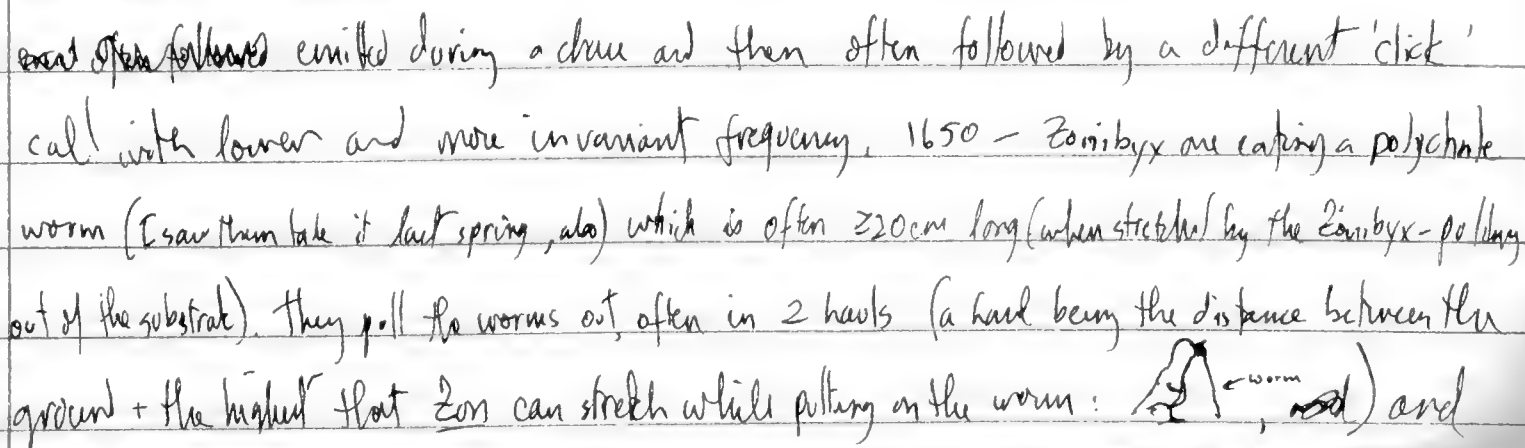 emitted during a chase and then often followed by a different 'click'
call with lower and more invariant frequency. 1650 - Zonibyx are eating a polychate
worm (I saw them take it last spring, also) which is often ≥20cm long (when stretched by the Zonibyx - pulling
out of the substrate). They pull the worms out, often in 2 hauls (a haul being the distance between the
ground + the highest that Zon can stretch while pulling on the worm: ← worm ) and